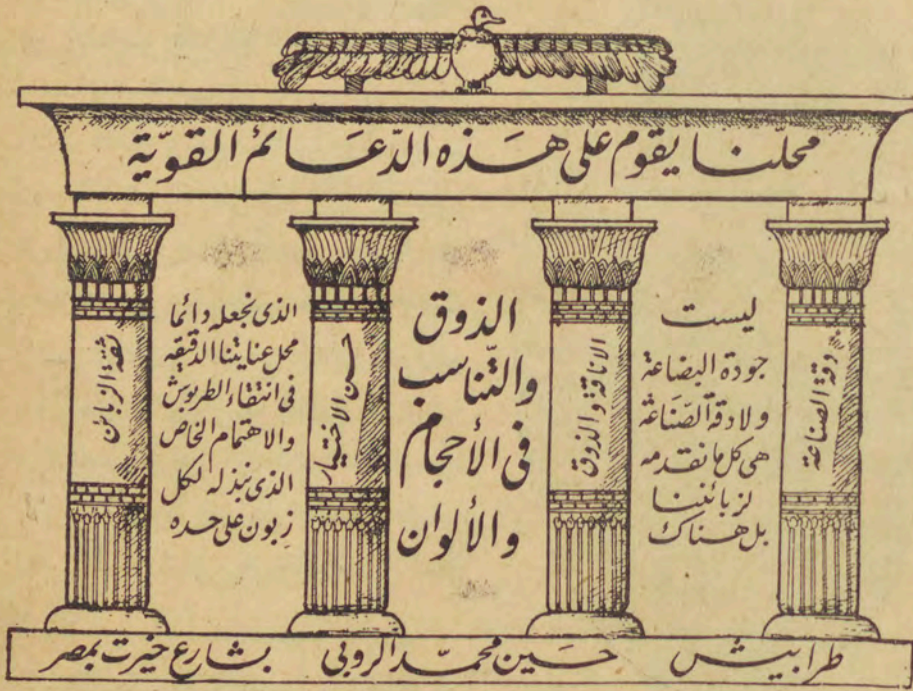 محلّنا يقوم على هَذه الدّعَائم القويّة
دقة الصناعة
ليست
جودة البضاعة
ولا دقة الصّناعة
هى كل ما نقدمه
لزبائننا
بل هناك
الاناقة والذوق
الذوق
والتّناسب
فى الأحجام
والألوان
حسن الاختيار
الذى نجعله دائما
محل عنايتنا الدقيقه
فى انتقاء الطربوش
والاهتمام الخاص
الذى نبذله لكل
زبون على حده
ثقة الزبائن
طرابيش حسَين محمّد الروبى بشارع خيرت بمصر